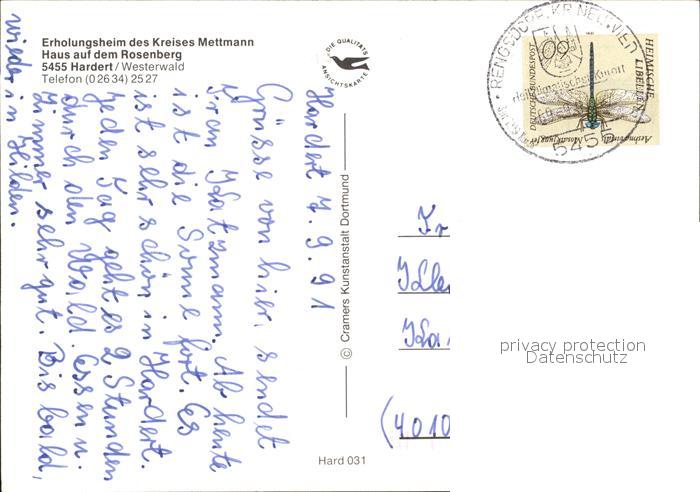 Erholungsheim des Kreises Mettmann
Haus auf dem Rosenberg
5455 Hardert / Westerwald
Telefon (0 26 34) 25 27
DIE QUALITÄTS
ANSICHTSKARTE
Hardert 7.9.91
Grüsse von hier, sendet
Frau Katzmann. Ab heute
ist die Sonne fort. Es
ist sehr schön in Hardert.
Jeden Tag geht es 2 Stunden
durch den Wald. Essen u.
Zimmer sehr gut. Bis bald,
wieder in Hilden.
© Cramers Kunstanstalt Dortmund
Hard 031
RENGSDORF, KR NEUWIED
Heilklimatischer Kurort
5455
DEUTSCHE BUNDESPOST
HEIMISCHE
LIBELLEN
Mosaikjungfer
60
Fr
(4010
privacy protection
Datenschutz